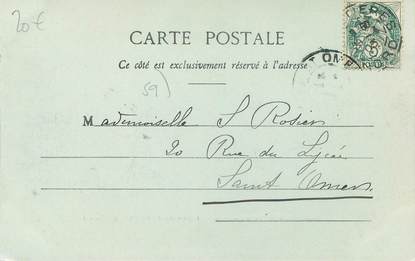 20€
CARTE POSTALE
Ce côté est exclusivement réservé à l'adresse
59)
Mademoiselle S Rodier
20 Rue du Lycée
Saint Omer